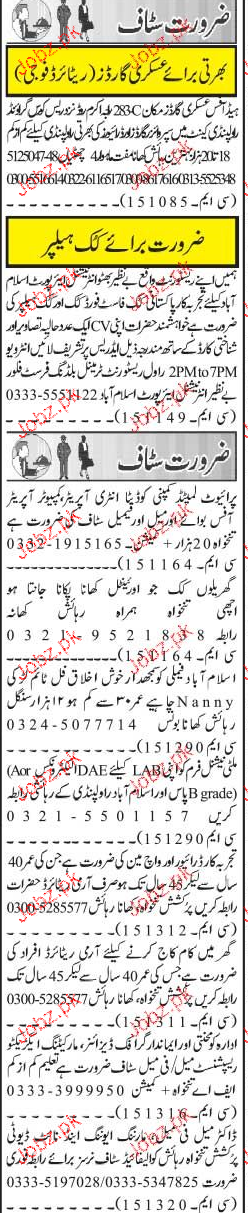 ضرورت سٹاف
بھرتی برائے عسکری گارڈز (ریٹائرڈ فوجی)
ہیڈ آفس عسکری گارڈز مکان 283-C
راولپنڈی کینٹ میں
18 تا 20 ہزار
(سی ایم۔151085)
ضرورت برائے کک ہیلپر
ہمیں اپنے ریسٹورنٹ واقع بے نظیر بھٹو انٹرنیشنل ایئرپورٹ اسلام
آباد کیلئے تجربہ کار پاکستانی کک فاسٹ فوڈ کک اور کک ہیلپر کی
ضرورت ہے خواہشمند حضرات اپنی CV ایک عدد حالیہ تصاویر اور
شناختی کارڈ کے ساتھ مندرجہ ذیل ایڈریس پر تشریف لائیں انٹرویو
2PM to 7PM راول ریسٹورنٹ ٹرمینل بلڈنگ فرسٹ فلور
بے نظیر انٹرنیشنل ایئرپورٹ اسلام آباد 0333-5551122
(سی ایم۔151149)
ضرورت سٹاف
پرائیویٹ لمیٹڈ کمپنی کو ڈیٹا انٹری آپریٹر، کمپیوٹر آپریٹر
آفس بوائے اور میل اور فیمیل سٹاف کی ضرورت ہے
تنخواہ 20 ہزار + کمیشن۔ 0302-1915165
(سی ایم۔151164)
گھریلوں کک جو اورئینٹل کھانا پکانا جانتا ہو
اچھی تنخواہ ہمراہ رہائش کھانہ
رابطہ 0321-9521838
(سی ایم۔151164)
اسلام آباد فیملی کو سمجھدار خوش اخلاق فل ٹائم کرنگی
Nanny چاہیے عمر 30 سے کم ہو 12 ہزار سنگل
رہائش کھانا بونس 0324-5077714
(سی ایم۔151290)
ملٹی نیشنل فرم کو اپنی LAB کیلئے DAE الیکٹرونکس (A or
B grade) پاس اور اسلام آباد راولپنڈی کے رہائشی رابطہ
کریں 0321-5501157
(سی ایم۔151290)
تجربہ کار ڈرائیور اور واچ مین کی ضرورت ہے جن کی عمر 40
سال سے لیکر 45 سال تک ہو صرف آرمی ریٹائرڈ حضرات
رابطہ کریں پرکشش تنخواہ، کھانا رہائش 0300-5285577
(سی ایم۔151312)
گھر میں کام کاج کرنے کیلئے آرمی ریٹائرڈ افراد کی
ضرورت ہے جس کی عمر 40 سال سے لیکر 45 سال تک
رابطہ کریں پرکشش تنخواہ، کھانا رہائش 0300-5285577
(سی ایم۔151311)
ادارہ کو محنتی اور ایماندار گرافک ڈیزائنر، مارکیٹنگ ایگزیکٹو
ریسپشنسٹ میل/فی میل سٹاف ضرورت ہے تعلیم کم از کم
ایف اے تنخواہ + کمیشن 0333-3999950
(سی ایم۔151316)
ڈاکٹر میل فی میل مارننگ ایوننگ اینڈ نائٹ ڈیوٹی
پرکشش تنخواہ رہائش کوالیفائیڈ سٹاف نرسز برائے رابطہ فوری
ضرورت 0333-5347825/0333-5197028
(سی ایم۔151320)
Jobz.pk